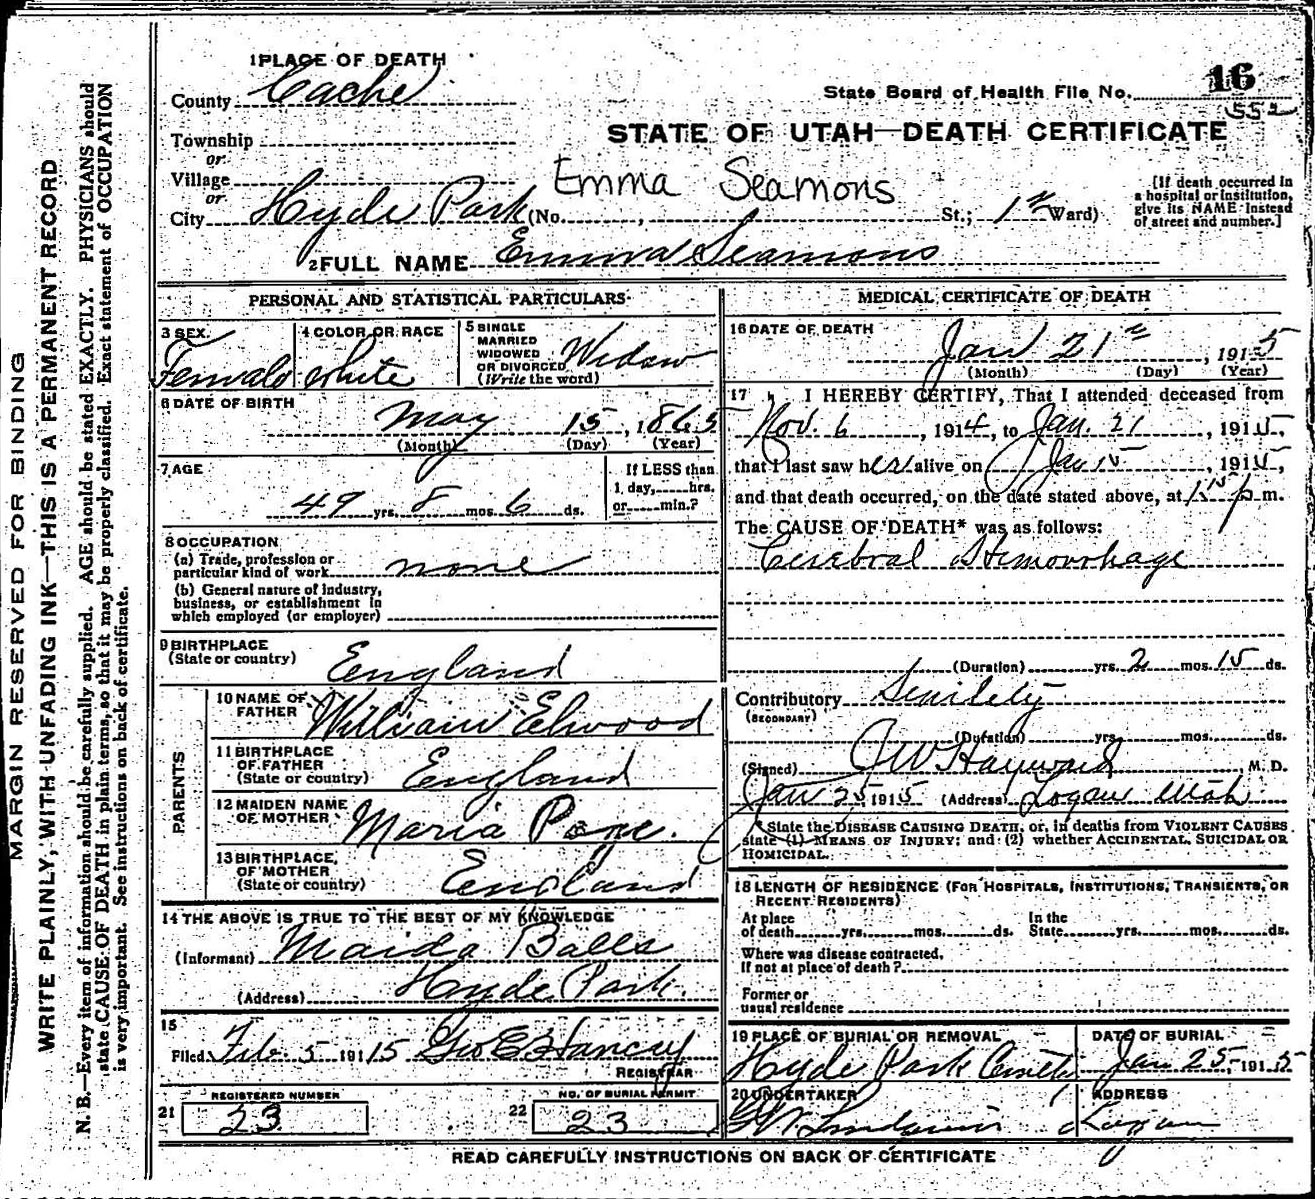 MARGIN RESERVED FOR BINDING
WRITE PLAINLY, WITH UNFADING INK—THIS IS A PERMANENT RECORD
N. B.—Every item of information should be carefully supplied. AGE should be stated EXACTLY. PHYSICIANS should
state CAUSE OF DEATH in plain terms, so that it may be properly classified. Exact statement of OCCUPATION
is very important. See instructions on back of certificate.
1 PLACE OF DEATH
County Cache
Township
or
Village
or
City Hyde Park (No. , St.; 1st Ward)
State Board of Health File No. 16
552
STATE OF UTAH—DEATH CERTIFICATE
Emma Seamons
[If death occurred in
a hospital or institution,
give its NAME instead
of street and number.]
2 FULL NAME Emma Seamons
PERSONAL AND STATISTICAL PARTICULARS
3 SEX
Female
4 COLOR OR RACE
White
5 SINGLE
MARRIED
WIDOWED
OR DIVORCED
(Write the word)
Widow
6 DATE OF BIRTH
May 15, 1865
(Month) (Day) (Year)
7 AGE
49 yrs. 8 mos. 6 ds.
If LESS than
1 day, hrs.
or min.?
8 OCCUPATION
(a) Trade, profession or
particular kind of work none
(b) General nature of industry,
business, or establishment in
which employed (or employer)
9 BIRTHPLACE
(State or country) England
PARENTS
10 NAME OF
FATHER William Elwood
11 BIRTHPLACE
OF FATHER
(State or country) England
12 MAIDEN NAME
OF MOTHER Maria Page.
13 BIRTHPLACE
OF MOTHER
(State or country) England
14 THE ABOVE IS TRUE TO THE BEST OF MY KNOWLEDGE
(Informant) Maida Balls
(Address) Hyde Park.
15
Filed Feb. 5 191 15 Geo E Hancey
REGISTRAR
REGISTERED NUMBER
21 23
NO. OF BURIAL PERMIT
22 23
MEDICAL CERTIFICATE OF DEATH
16 DATE OF DEATH
Jan 21st, 1915
(Month) (Day) (Year)
17 I HEREBY CERTIFY, That I attended deceased from
Nov. 6, 1914, to Jan. 21, 1915,
that I last saw her alive on Jan 15, 1915,
and that death occurred, on the date stated above, at p m.
The CAUSE OF DEATH* was as follows:
Cerebral Hemorrhage
(Duration) yrs. 2 mos. 15 ds.
Contributory Senilety
(SECONDARY)
(Duration) yrs. mos. ds.
(Signed) J W Hayward M. D.
Jan 25 1915 (Address) Logan Utah
State the DISEASE CAUSING DEATH, or, in deaths from VIOLENT CAUSES
state (1) MEANS OF INJURY; and (2) whether ACCIDENTAL, SUICIDAL OR
HOMICIDAL.
18 LENGTH OF RESIDENCE (FOR HOSPITALS, INSTITUTIONS, TRANSIENTS, OR
RECENT RESIDENTS)
At place
of death yrs. mos. ds.
In the
State yrs. mos. ds.
Where was disease contracted,
If not at place of death?
Former or
usual residence
19 PLACE OF BURIAL OR REMOVAL
Hyde Park
DATE OF BURIAL
Jan 25, 1915
20 UNDERTAKER
Lindquist
ADDRESS
Logan
READ CAREFULLY INSTRUCTIONS ON BACK OF CERTIFICATE